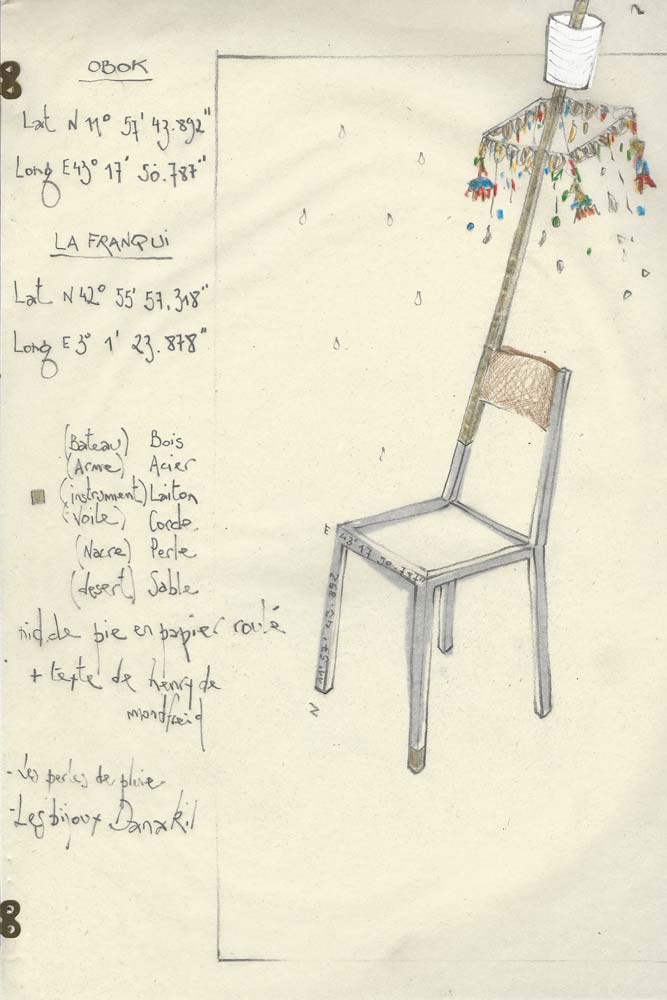 OBOK
Lat N 11° 57' 43.892"
Long E 43° 17' 50.787"
LA FRANQUI
Lat N 42° 55' 57.318"
Long E 3° 1' 23.878"
(Bateau) Bois
(Arme) Acier
(instrument) Laiton
(Voile) Corde
(Nacre) Perle
(desert) Sable
nid de pie en papier roulé
+ texte de henry de
monfreid
- Les perles de pluie
- Les bijoux Danakil
E 43° 17 50.787"
11° 57' 43.892
N